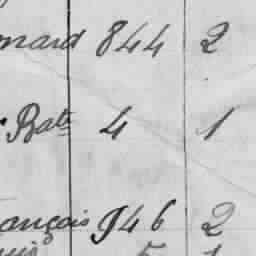 onard 844 2
Bate 4 1
ançois 946 2
5 1